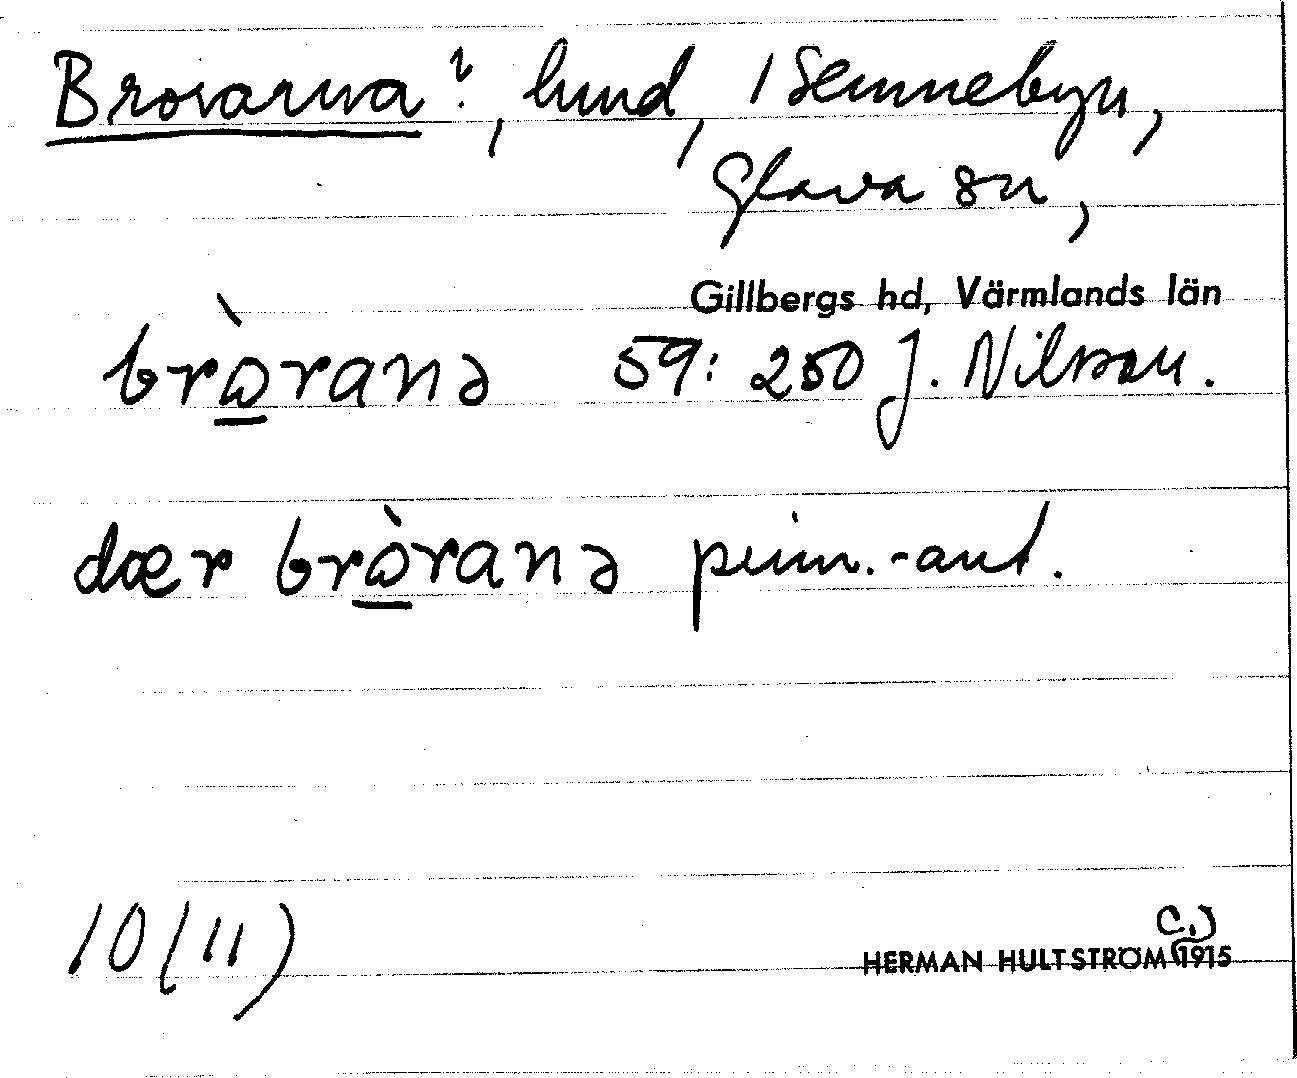 Brovarna?, lund, 1 Sennebyn,
Glava sn,
Gillbergs hd, Värmlands län
brὼranə 59: 250 J. Nilsson.
dær brὼranə pinn.-ant.
10(11)
c.)
HERMAN HULTSTRÖM (1915